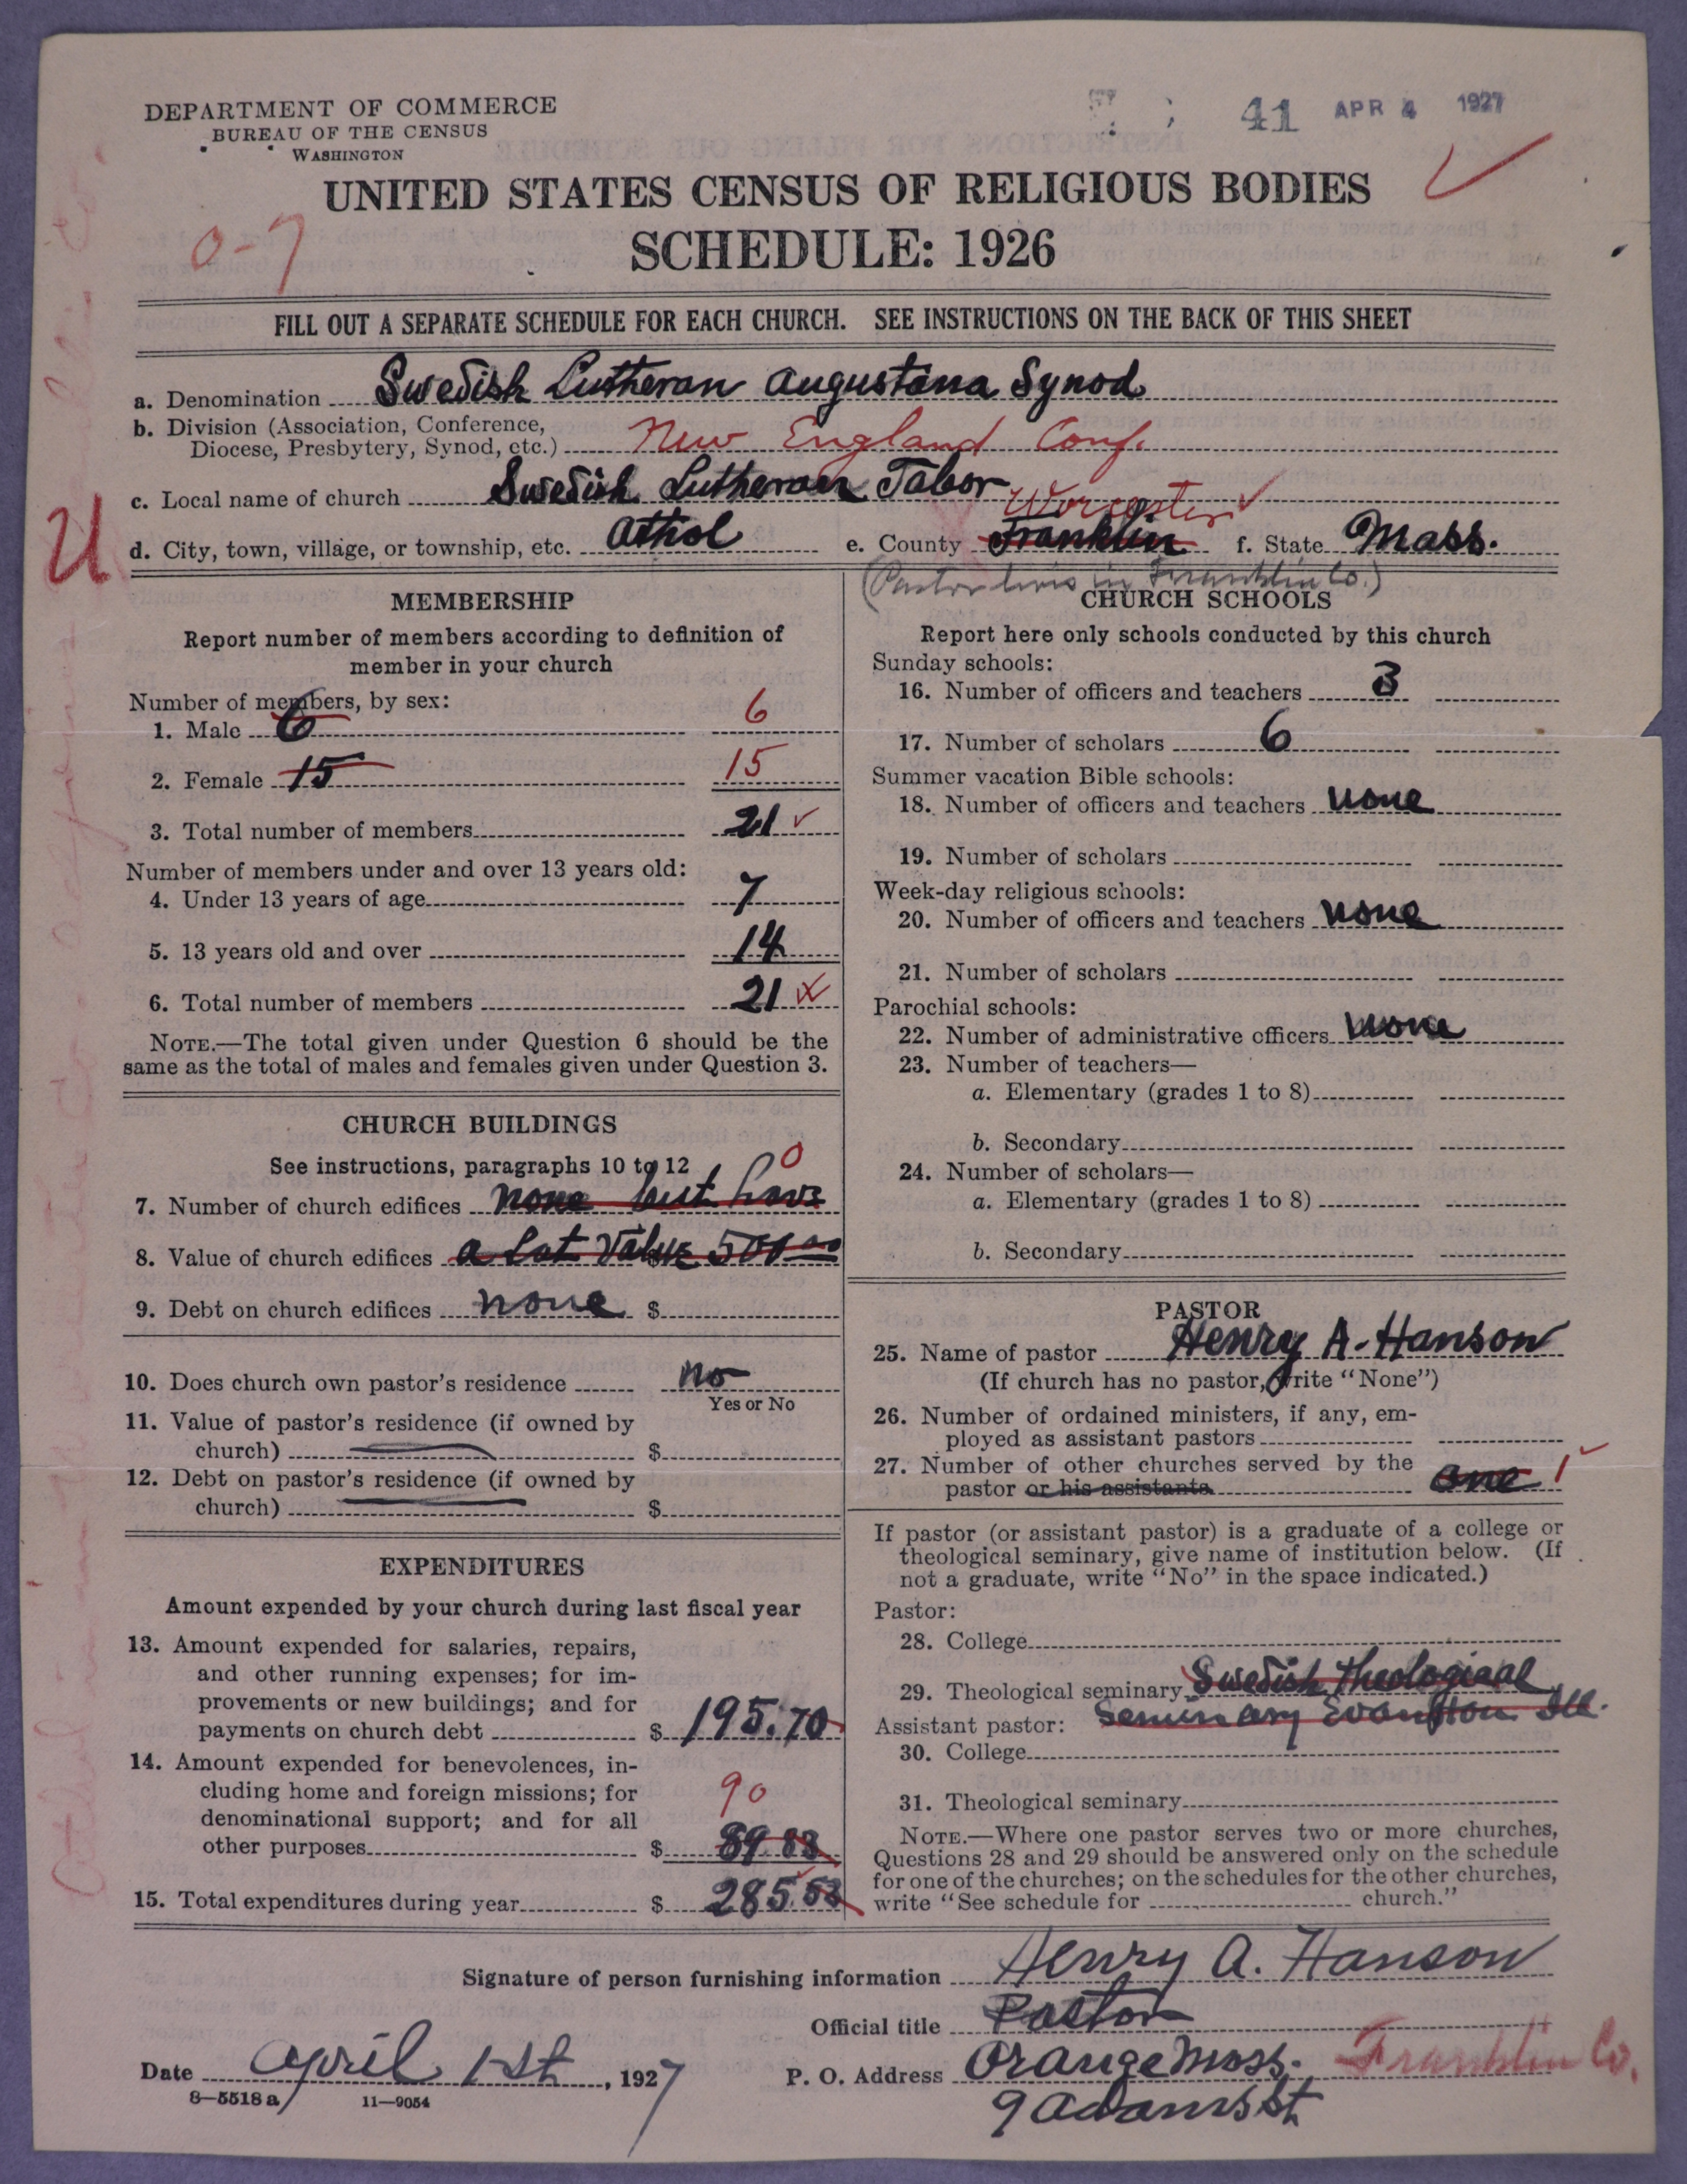 DEPARTMENT OF COMMERCE
BUREAU OF THE CENSUS
WASHINGTON
41 APR 4 1927
UNITED STATES CENSUS OF RELIGIOUS BODIES
0-7
SCHEDULE: 1926
FILL OUT A SEPARATE SCHEDULE FOR EACH CHURCH. SEE INSTRUCTIONS ON THE BACK OF THIS SHEET
a. Denomination Swedish Lutheran Augustana Synod
b. Division (Association, Conference,
Diocese, Presbytery, Synod, etc.) New England Conf.
c. Local name of church Swedish Lutheran Tabor
Worcester
U
d. City, town, village, or township, etc. Athol e. County Franklin f. State Mass.
(Pastor lives in Franklin Co.)
MEMBERSHIP
Report number of members according to definition of
member in your church
Number of members, by sex:
1. Male 6 6
2. Female 15 15
3. Total number of members 21
Number of members under and over 13 years old:
4. Under 13 years of age 7
5. 13 years old and over 14
6. Total number of members 21
NOTE.—The total given under Question 6 should be the
same as the total of males and females given under Question 3.
CHURCH BUILDINGS
See instructions, paragraphs 10 to 12
0
7. Number of church edifices none but have
8. Value of church edifices a Lot Value 500 00
9. Debt on church edifices none $
10. Does church own pastor's residence no
Yes or No
11. Value of pastor's residence (if owned by
church) $
12. Debt on pastor's residence (if owned by
church) $
EXPENDITURES
Amount expended by your church during last fiscal year
13. Amount expended for salaries, repairs,
and other running expenses; for im-
provements or new buildings; and for
payments on church debt $ 195.70
14. Amount expended for benevolences, in-
cluding home and foreign missions; for
denominational support; and for all
90
other purposes $ 89.83
15. Total expenditures during year $ 285.53
CHURCH SCHOOLS
Report here only schools conducted by this church
Sunday schools:
16. Number of officers and teachers 3
17. Number of scholars 6
Summer vacation Bible schools:
18. Number of officers and teachers none
19. Number of scholars
Week-day religious schools:
20. Number of officers and teachers none
21. Number of scholars
Parochial schools:
22. Number of administrative officers none
23. Number of teachers—
a. Elementary (grades 1 to 8)
b. Secondary
24. Number of scholars—
a. Elementary (grades 1 to 8)
b. Secondary
PASTOR
25. Name of pastor Henry A. Hanson
(If church has no pastor, write "None")
26. Number of ordained ministers, if any, em-
ployed as assistant pastors
27. Number of other churches served by the
pastor or his assistants one 1
If pastor (or assistant pastor) is a graduate of a college or
theological seminary, give name of institution below. (If
not a graduate, write "No" in the space indicated.)
Pastor:
28. College
29. Theological seminary Swedish Theological
Assistant pastor: Seminary Evanston Ill.
30. College
31. Theological seminary
NOTE.—Where one pastor serves two or more churches,
Questions 28 and 29 should be answered only on the schedule
for one of the churches; on the schedules for the other churches,
write "See schedule for church."
Signature of person furnishing information Henry A. Hanson
Official title Pastor
Date April 1st, 1927 P. O. Address Orange Mass. Franklin Co.
9 Adams St
8—5518 a 11—9054